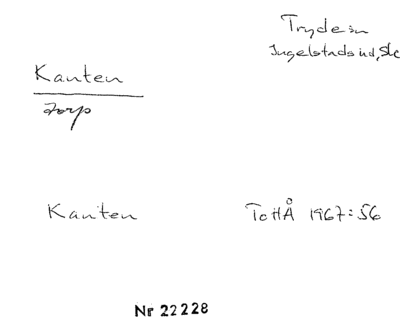 Tryde sn
Ingelstads hd, Sk
Kanten
torp
Kanten
ToHÅ 1967:56
Nr 22228